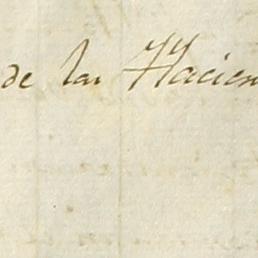 de la Hacien